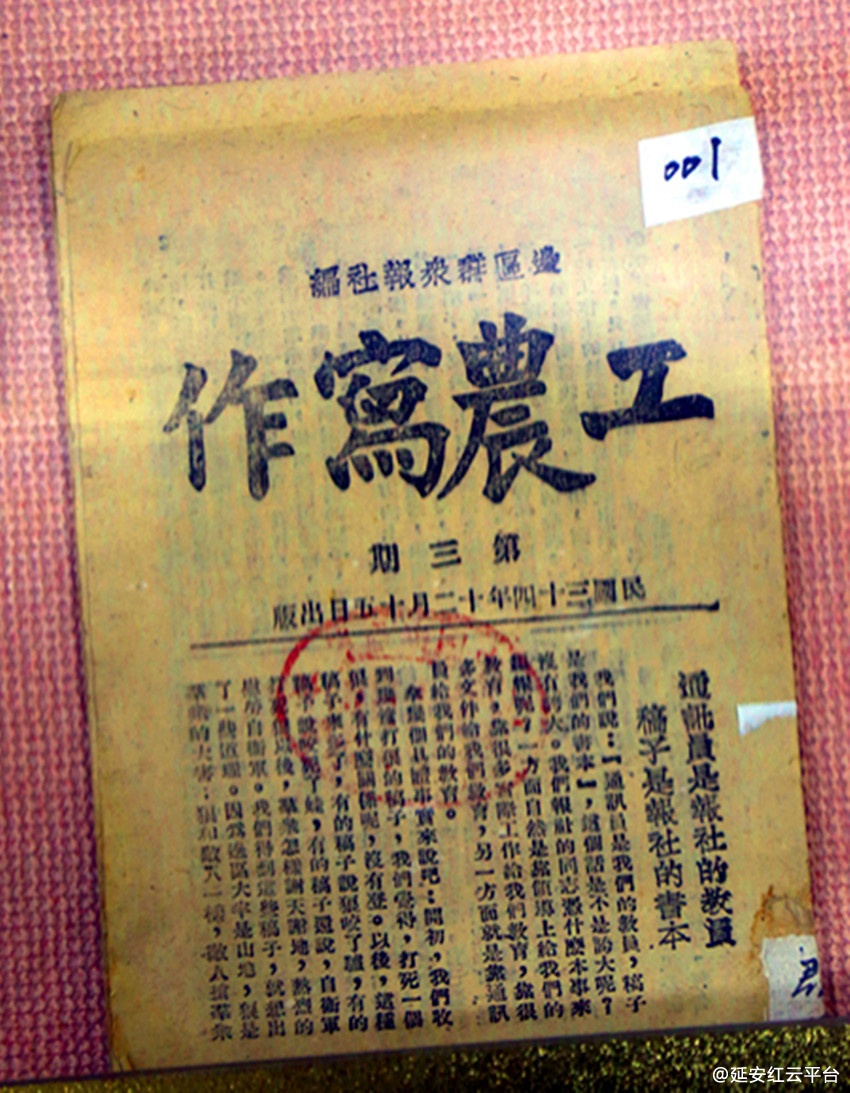 001
邊區群眾報社編
工農寫作
第三期
民國三十四年十二月十五日出版
通訊員是報社的教員
稿子是報社的書本
我們說：『通訊員是我們的教員，稿子
是我們的書本』，這個話是不是誇大呢？
沒有誇大。我們報社的同志憑什麼本事來
編報呢？一方面自然是靠領導上給我們的
教育，靠很多實際工作給我們教育，靠很
多文件給我們教育，另一方面就是靠通訊
員給我們的教育。
拿幾個具體事實來說吧：開初，我們收
到幾篇打狼的稿子，我們覺得，打死一個
狼，有什麼關係呢，沒有登。以後，這種
稿子來多了，有的稿子說狼咬了驢，有的
稿子說咬死了娃，有的稿子還說，自衛軍
打死狼以後，羣衆怎樣謝天謝地，熱烈的
慰勞自衛軍。我們得到這些稿子，就想出
了一些道理。因爲邊區大半是山地，狼是
羣衆的大害；狼和敵人一樣，敵人搶羣衆
@延安红云平台